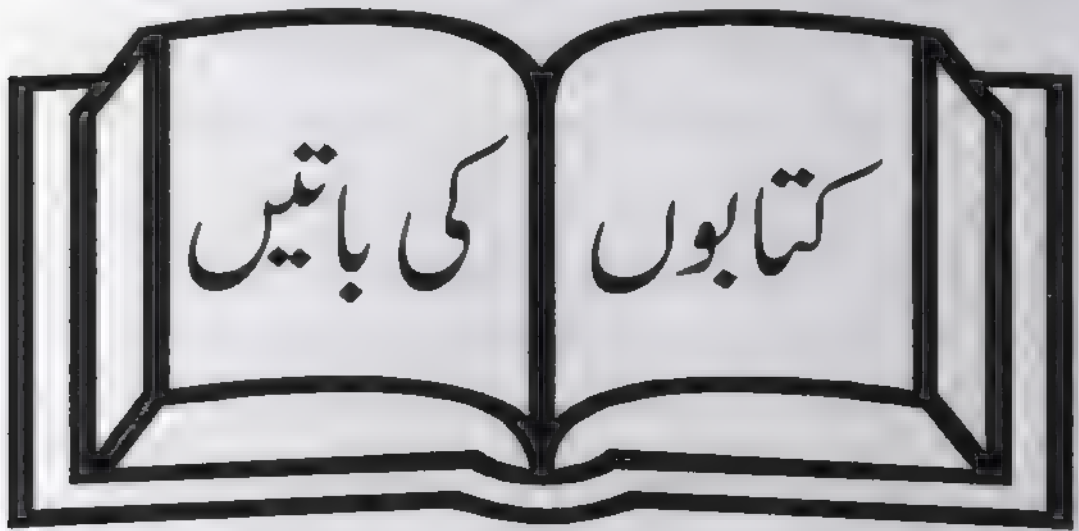 کتابوں کی باتیں